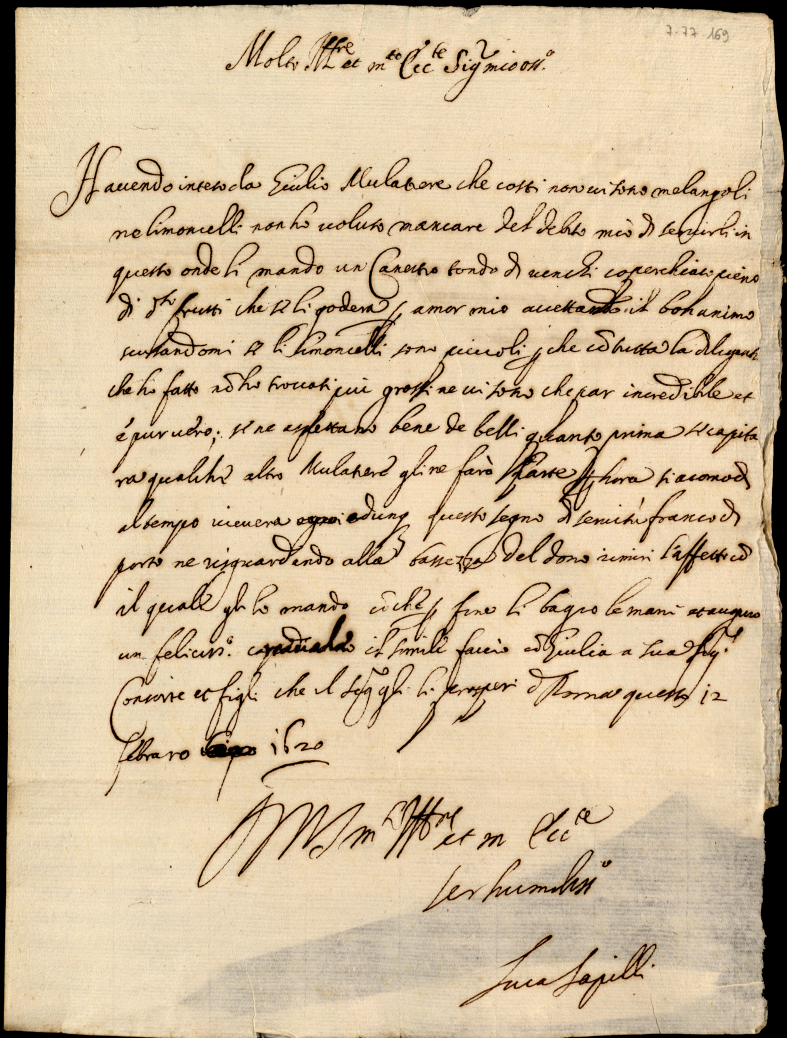 7-77 169
Molto Ill.re et m.to Ecc.te Sig.r mio oss.o
Havendo inteso da Giulio Mulatiere che costi non vi sono melangoli
ne limoncelli non ho voluto mancare del debito mio di servirli in
questo onde li mando un Canestro tondo di venchi coperchiato pieno
di d.ti frutti che se li goderà p amor mio accettando il bon animo
scusandomi se li limoncelli sono piccoli p che cō tutta la diligenza
che ho fatto nō ho trovati più grossi ne vi sono che par incredibile et
è pur vero; se ne aspettano bene de belli quanto prima se capita
rà qualche altro Mulatiere gline farò parte p hora si acomodi
al tempo riceverà adunq questo segno di servitù franco di
porto ne risguardando alla bassezza del dono rimiri l'affetto cō
il quale gli lo mando cō che p fine li bagio le mani et auguro
un felicis.o il simile faccio cō Giulia a sua Sig.ra
Consorte et figli che il Sig.r gli li prosperi d Roma questo 12
febraro 1620
D V S m.to Ill.re et m Ecc.te
Ser humiliss.o
Luca Sapilli